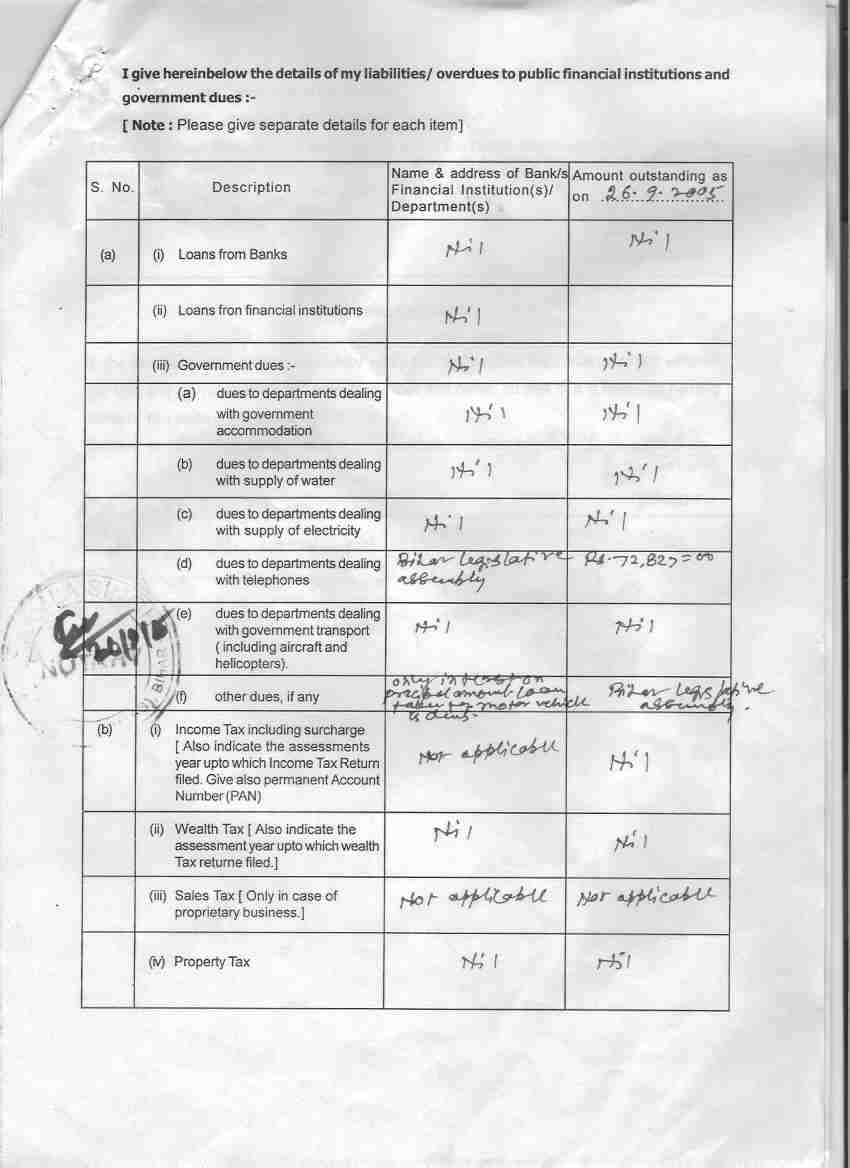 I give hereinbelow the details of my liabilities/ overdues to public financial institutions and
government dues :-
[ Note : Please give separate details for each item]
S. No.
Description
Name & address of Bank/s
Financial Institution(s)/
Department(s)
Amount outstanding as
on 26.9.2005
(a)
(i) Loans from Banks
Nil
Nil
(ii) Loans fron financial institutions
Nil
(iii) Government dues :-
Nil
Nil
(a) dues to departments dealing
with government
accommodation
Nil
Nil
(b) dues to departments dealing
with supply of water
Nil
Nil
(c) dues to departments dealing
with supply of electricity
Nil
Nil
(d) dues to departments dealing
with telephones
Bihar legislative
assembly
Rs. 72,827=00
(e) dues to departments dealing
with government transport
( including aircraft and
helicopters).
Nil
Nil
(f) other dues, if any
only interest on
amount loan
motor vehicle
is
Bihar legislative
assembly.
(b)
(i) Income Tax including surcharge
[ Also indicate the assessments
year upto which Income Tax Return
filed. Give also permanent Account
Number (PAN)
Not applicable
Nil
(ii) Wealth Tax [ Also indicate the
assessment year upto which wealth
Tax returne filed.]
Nil
Nil
(iii) Sales Tax [ Only in case of
proprietary business.]
Not applicable
Not applicable
(iv) Property Tax
Nil
Nil
NOTARY
BIHAR